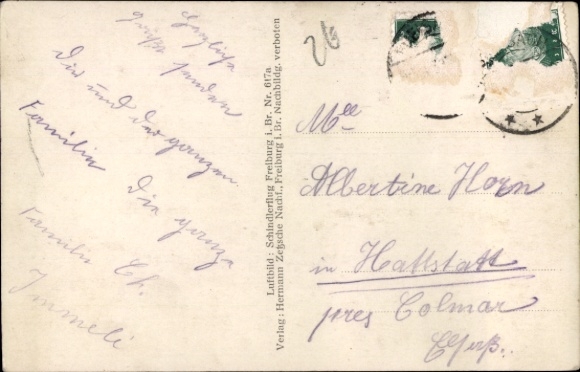 Herzliche
Grüße senden
Dir und der ganzen
Familie
Die ganze
Familie Ch.
Immele
Luftbild: Schindlerflug Freiburg i. Br. Nr. 617a
Verlag: Hermann Zetzsche Nachf., Freiburg i. Br. Nachbildg. verboten
26
Mlle
Albertine Horn
in Hattstatt
pres Colmar
Elsaß.